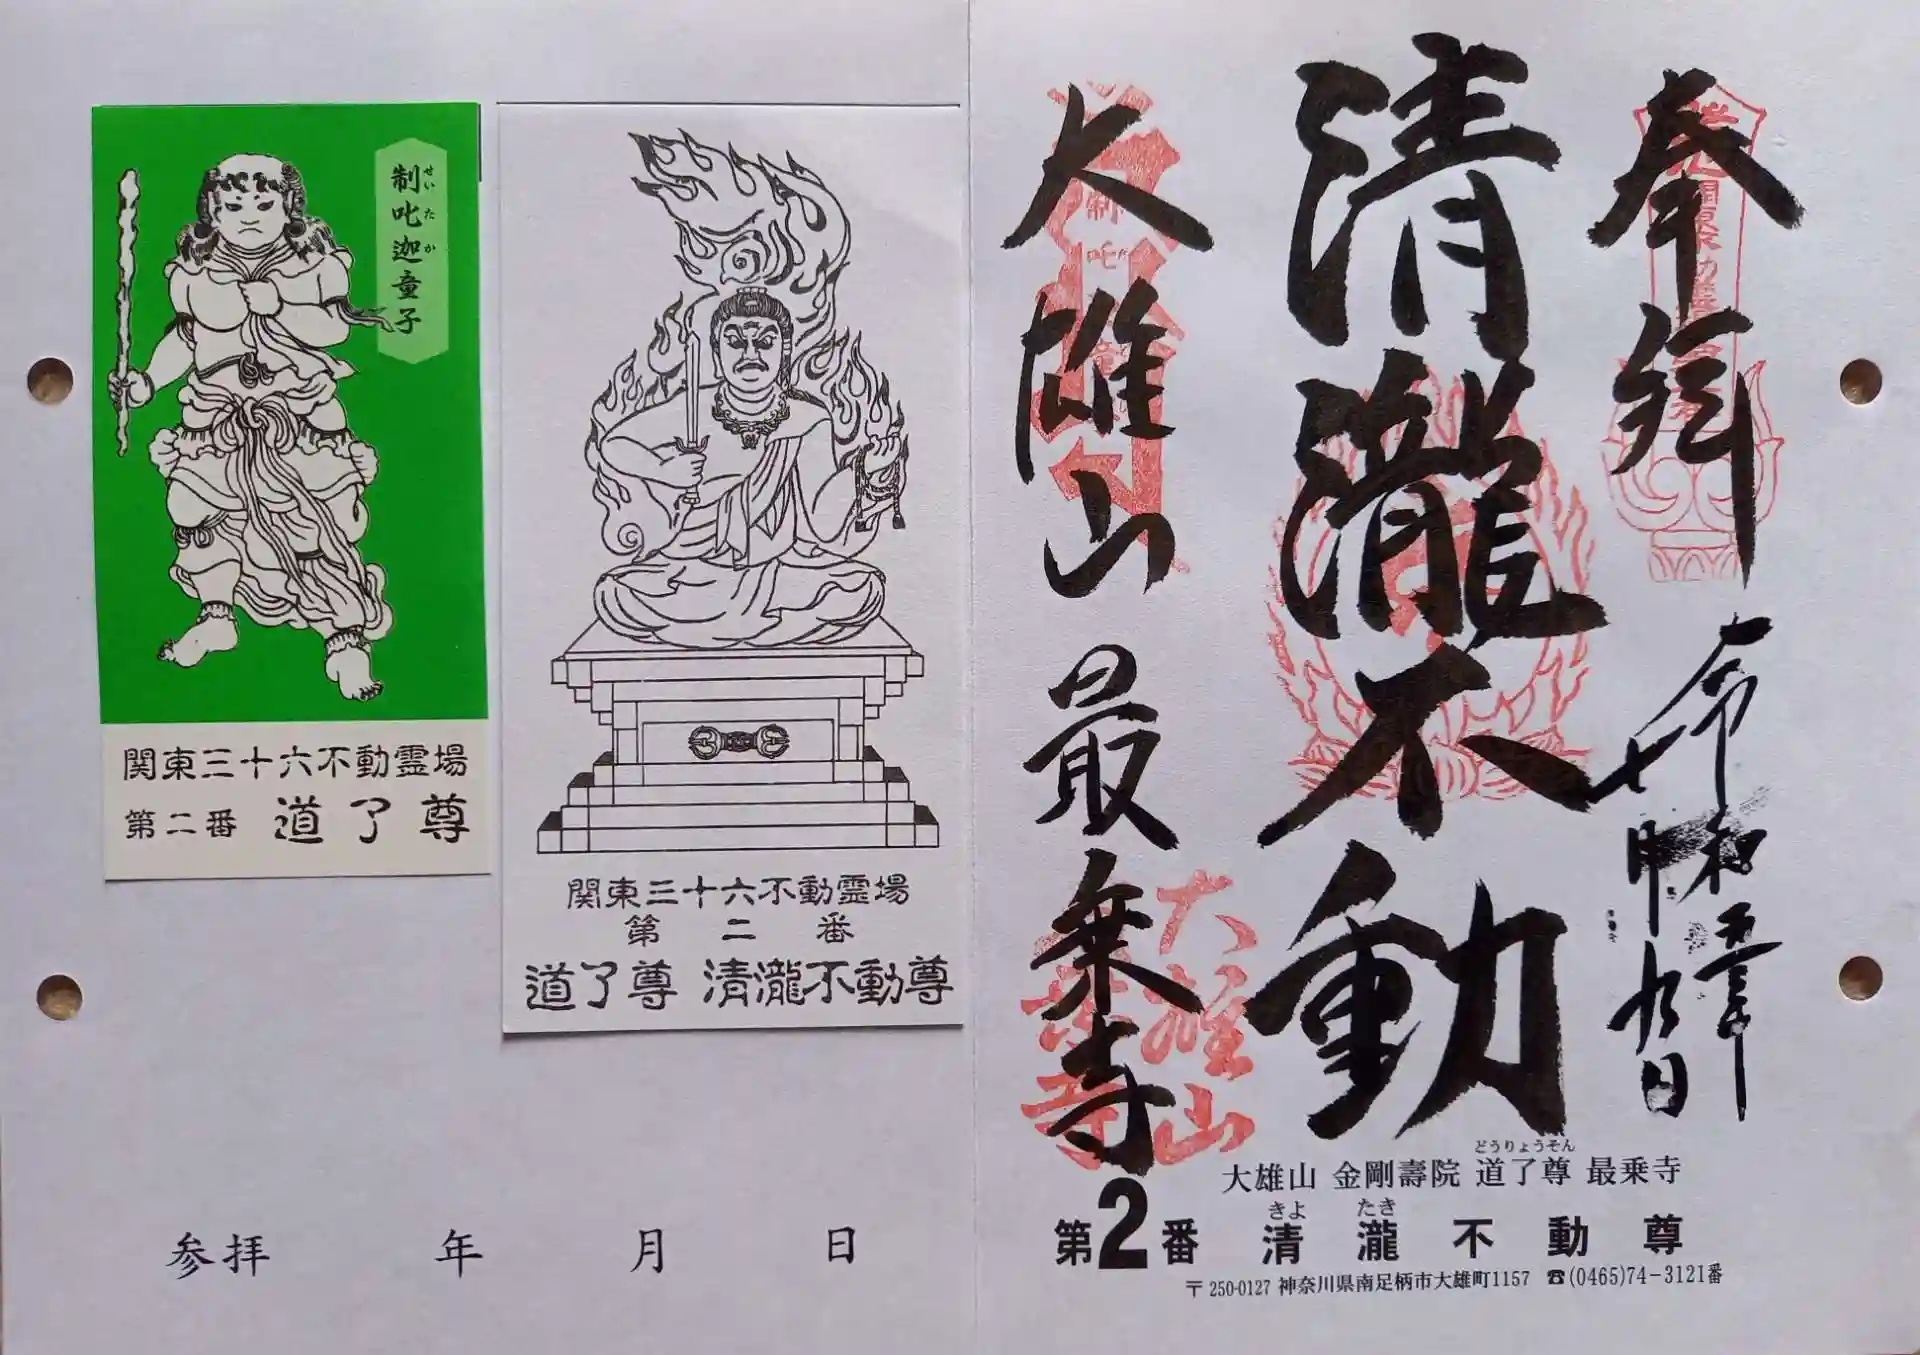 制叱迦童子
せいたか
関東三十六不動霊場
第二番 道了尊
関東三十六不動霊場
第二番
道了尊 清瀧不動尊
参拝 年 月 日
奉拝
令和五年
七月九日
清瀧不動
大雄山最乗寺
大雄山
最乗寺
どうりょうそん
大雄山 金剛壽院 道了尊 最乗寺
きよ たき
第2番 清瀧不動尊
〒250-0127 神奈川県南足柄市大雄町1157 ☎(0465)74-3121番